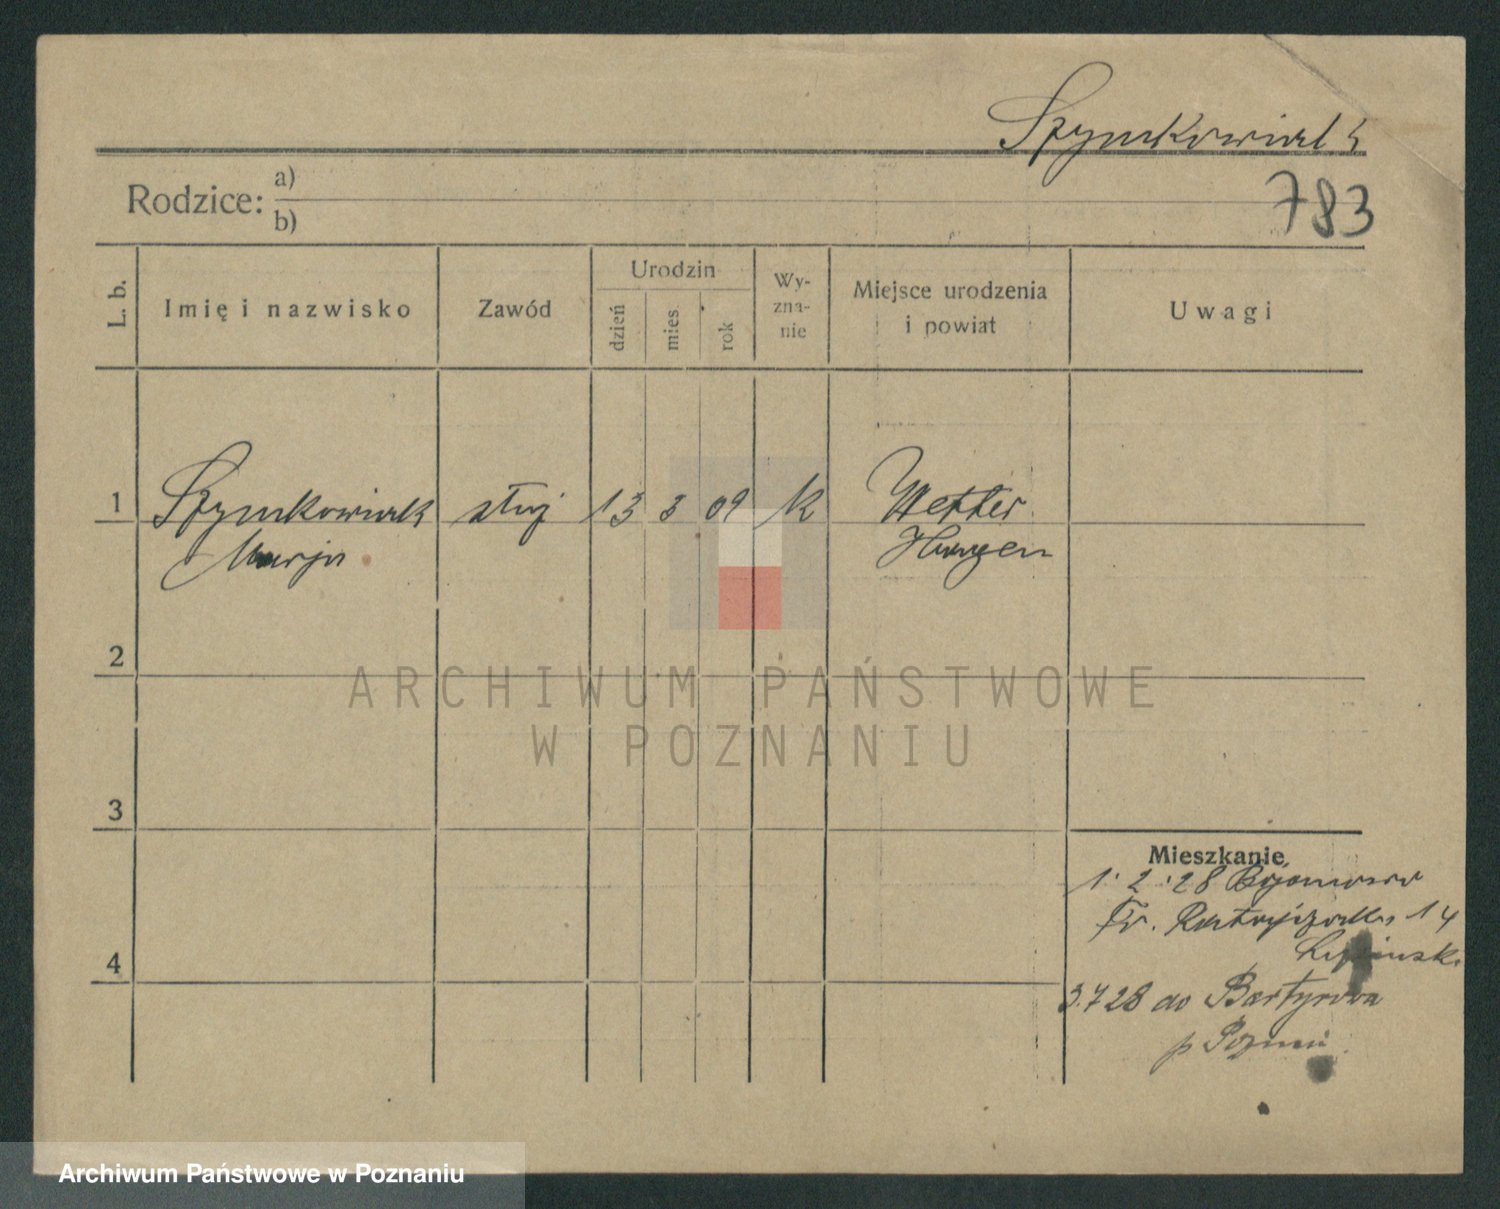 Szymkowiak
Rodzice: a)
b)
783
L. b.
Imię i nazwisko
Zawód
Urodzin
dzień
mies
rok
Wy-
zna-
nie
Miejsce urodzenia
i powiat
Uwagi
1 Szymkowiak służ 13 3 09 k Wetter
Marja Hagen
2
ARCHIWUM PAŃSTWOWE
W POZNANIU
3
Mieszkanie
1. 2. 28
Fr. Ratajczaka 14
Lipinsk
4
3.7 28 do
p Poznań
Archiwum Państwowe w Poznaniu